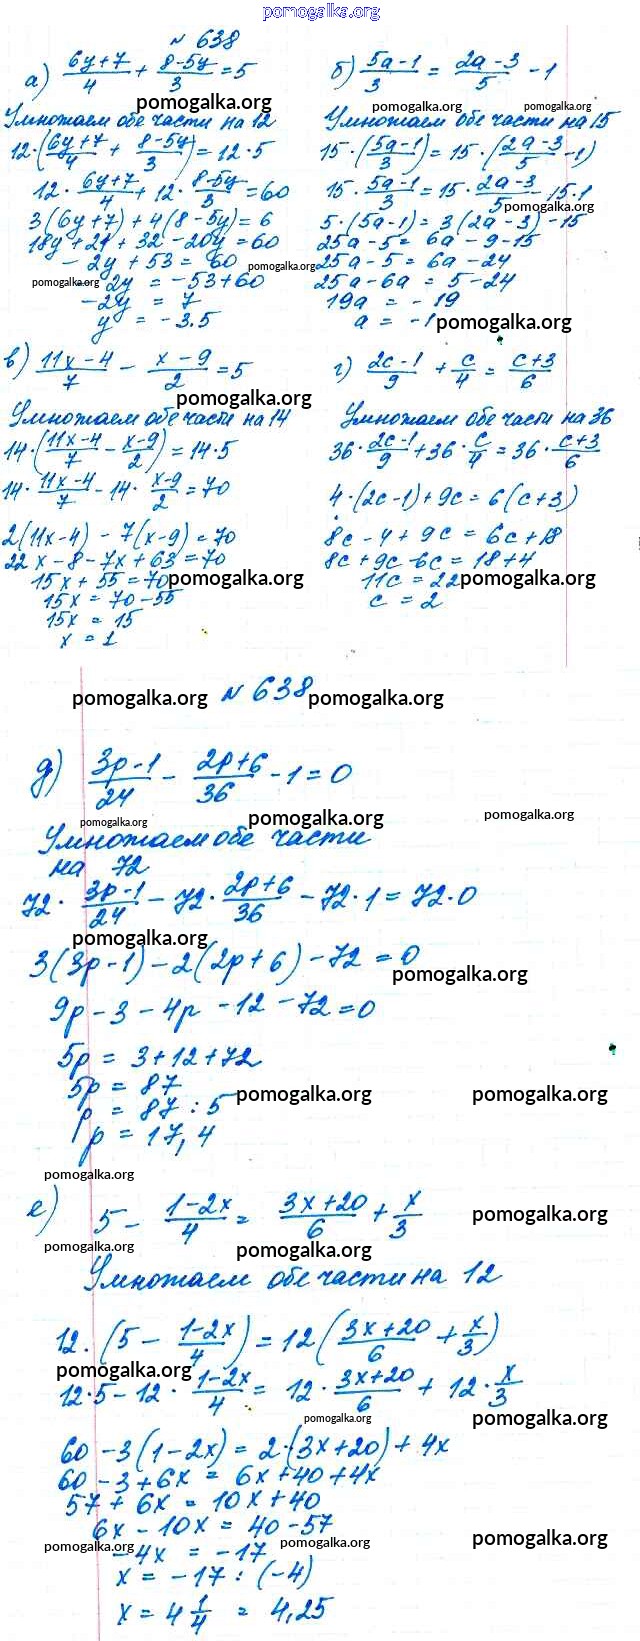 pomogalka.org
№ 638
а) (6y+7)/4 + (8-5y)/3 = 5
pomogalka.org
Умножаем обе части на 12
12·((6y+7)/4 + (8-5y)/3) = 12·5
12·(6y+7)/4 + 12·(8-5y)/3 = 60
3(6y+7) + 4(8-5y) = 6
18y + 21 + 32 - 20y = 60
- 2y + 53 = 60 pomogalka.org
pomogalka.org - 2y = -53+60
-2y = 7
y = -3.5
б) (5a-1)/3 = (2a-3)/5 - 1
pomogalka.org pomogalka.org
Умножаем обе части на 15
15·((5a-1)/3) = 15·((2a-3)/5 - 1)
15·(5a-1)/3 = 15·(2a-3)/5 - 15·1
pomogalka.org
5·(5a-1) = 3(2a-3) - 15
25a - 5 = 6a - 9 - 15
25a - 5 = 6a - 24
25a - 6a = 5 - 24
19a = - 19
a = -1 pomogalka.org
в) (11x-4)/7 - (x-9)/2 = 5
pomogalka.org
Умножаем обе части на 14
14·((11x-4)/7 - (x-9)/2) = 14·5
14·(11x-4)/7 - 14·(x-9)/2 = 70
2(11x-4) - 7(x-9) = 70
22x - 8 - 7x + 63 = 70
15x + 55 = 70 pomogalka.org
15x = 70-55
15x = 15
x = 1
г) (2c-1)/9 + c/4 = (c+3)/6
Умножаем обе части на 36
36·(2c-1)/9 + 36·c/4 = 36·(c+3)/6
4·(2c-1) + 9c = 6(c+3)
8c - 4 + 9c = 6c + 18
8c + 9c - 6c = 18+4
11c = 22 pomogalka.org
c = 2
pomogalka.org № 638 pomogalka.org
д) (3p-1)/24 - (2p+6)/36 - 1 = 0
pomogalka.org pomogalka.org pomogalka.org
Умножаем обе части
на 72
72·(3p-1)/24 - 72·(2p+6)/36 - 72·1 = 72·0
pomogalka.org
3(3p-1) - 2(2p+6) - 72 = 0
pomogalka.org
9p - 3 - 4p - 12 - 72 = 0
5p = 3+12+72
5p = 87
pomogalka.org pomogalka.org
p = 87 : 5
p = 17,4
pomogalka.org
е) 5 - (1-2x)/4 = (3x+20)/6 + x/3
pomogalka.org
pomogalka.org pomogalka.org
Умножаем обе части на 12
12·(5 - (1-2x)/4) = 12((3x+20)/6 + x/3)
pomogalka.org
12·5 - 12·(1-2x)/4 = 12·(3x+20)/6 + 12·x/3
pomogalka.org pomogalka.org
60 - 3(1-2x) = 2·(3x+20) + 4x
60 - 3 + 6x = 6x + 40 + 4x
57 + 6x = 10x + 40
6x - 10x = 40 - 57
pomogalka.org pomogalka.org pomogalka.org
-4x = -17
x = -17 : (-4)
x = 4 1/4 = 4,25